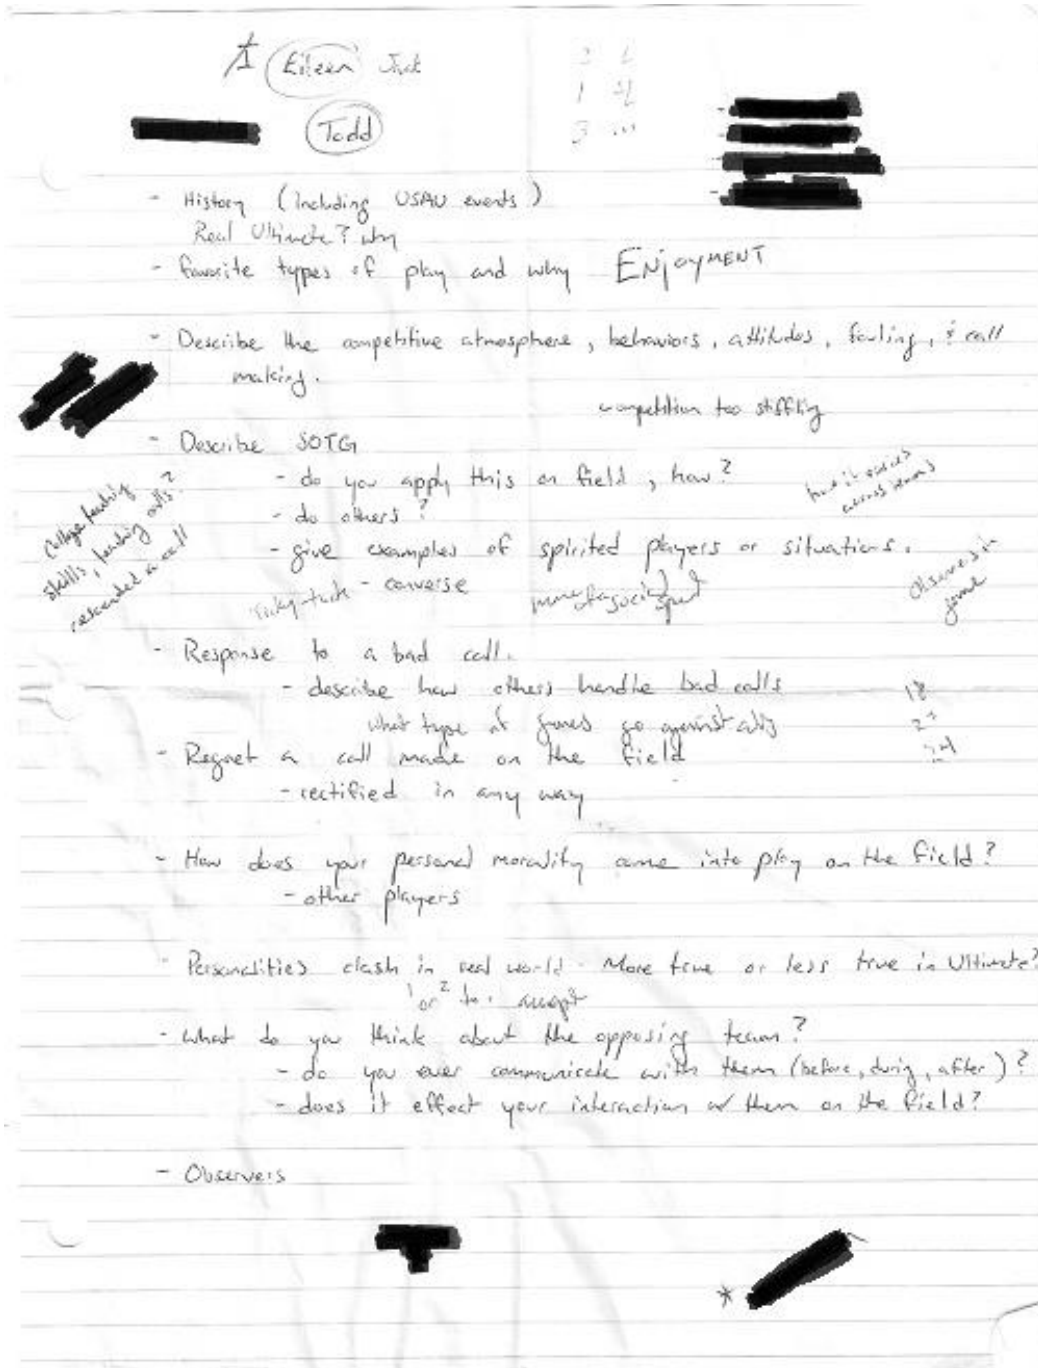 Eileen Jack
Todd
- History (Including USAU events)
Real Ultimate? why
- favorite types of play and why ENJOYMENT
- Describe the competitive atmosphere, behaviors, attitudes, fouling, & call
making.
competition too stiffling
- Describe SOTG
- do you apply this on field, how?
- do others?
- give examples of spirited players or situations.
- converse
college teaching
skills, teaching calls?
rescended a call
how it varies
across teams
more of a social sport
observers in
game
- Response to a bad call.
- describe how others handle bad calls
what type of games go against
18
- Regret a call made on the field
- rectified in any way
- How does your personal morality come into play on the field?
- other players
- Personalities clash in real world - More true or less true in Ultimate?
1 or 2 to accept
- what do you think about the opposing team?
- do you ever communicate with them (before, during, after)?
- does it effect your interaction w/ them on the field?
- Observers
*